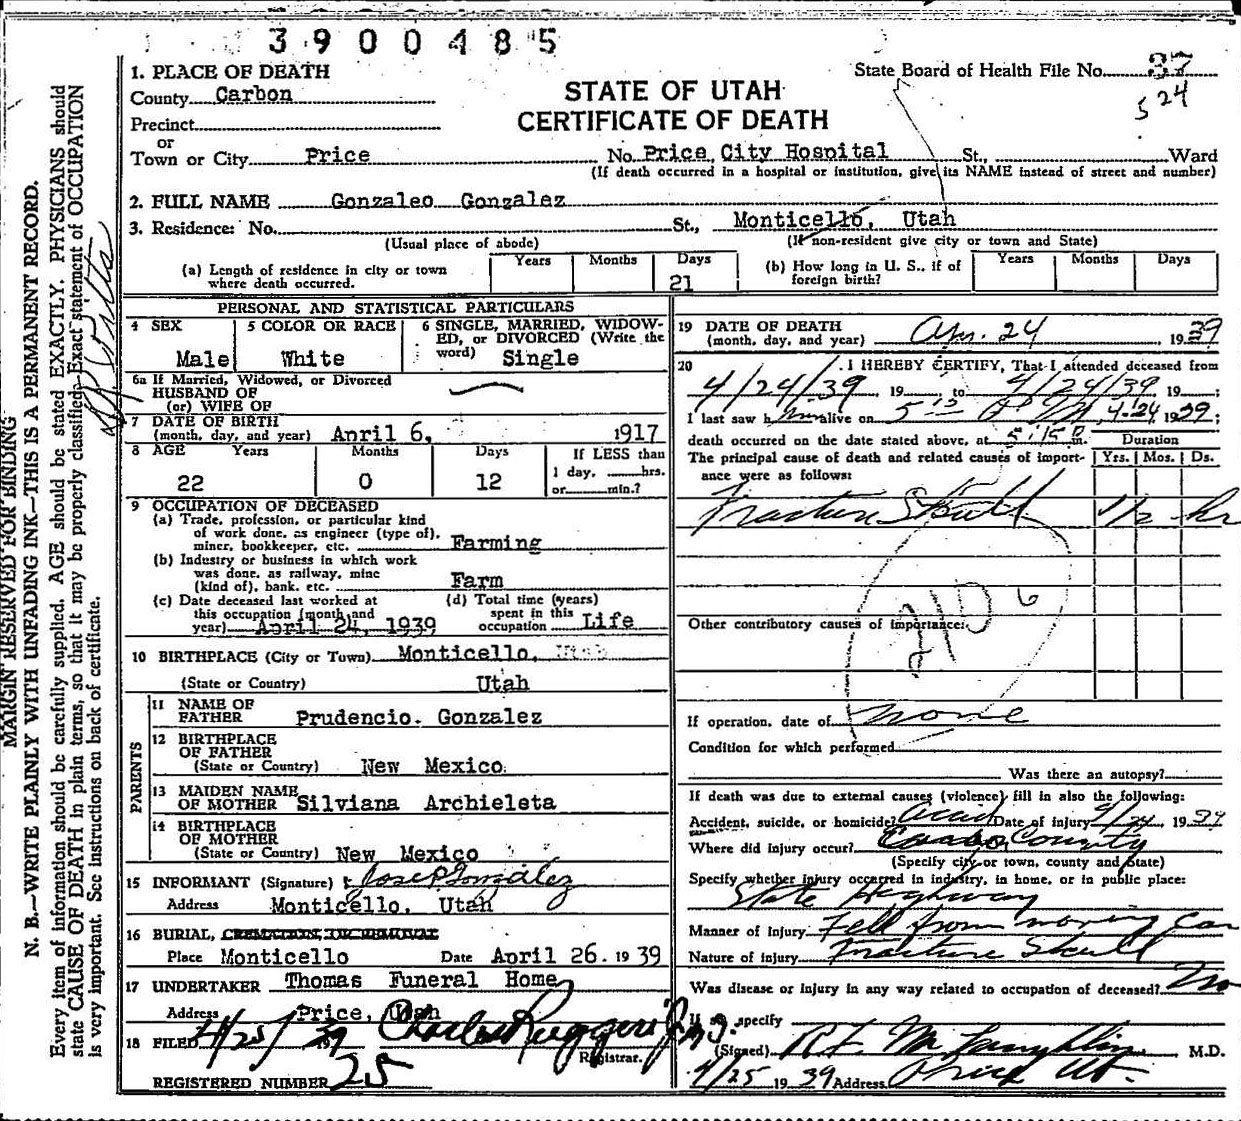 3900485
State Board of Health File No. 37
524
STATE OF UTAH
CERTIFICATE OF DEATH
1. PLACE OF DEATH
County Carbon
Precinct
or
Town or City Price No. Price City Hospital St., Ward
(If death occurred in a hospital or institution, give its NAME instead of street and number)
2. FULL NAME Gonzaleo Gonzalez
3. Residence: No. St., Monticello, Utah
(Usual place of abode) (If non-resident give city or town and State)
(a) Length of residence in city or town where death occurred. Years Months Days 21
(b) How long in U. S., if of foreign birth? Years Months Days
PERSONAL AND STATISTICAL PARTICULARS
4 SEX Male
5 COLOR OR RACE White
6 SINGLE, MARRIED, WIDOWED, or DIVORCED (Write the word) Single
6a If Married, Widowed, or Divorced
HUSBAND OF
(or) WIFE OF
7 DATE OF BIRTH
(month, day, and year) April 6, 1917
8 AGE Years Months Days If LESS than
22 0 12 1 day, hrs.
or min.?
9 OCCUPATION OF DECEASED
(a) Trade, profession, or particular kind
of work done, as engineer (type of),
miner, bookkeeper, etc. Farming
(b) Industry or business in which work
was done, as railway, mine
(kind of), bank, etc. Farm
(c) Date deceased last worked at
this occupation (month and
year) April 24, 1939
(d) Total time (years)
spent in this
occupation Life
10 BIRTHPLACE (City or Town) Monticello, Utah
(State or Country) Utah
PARENTS
11 NAME OF
FATHER Prudencio. Gonzalez
12 BIRTHPLACE
OF FATHER
(State or Country) New Mexico
13 MAIDEN NAME
OF MOTHER Silviana Archieleta
14 BIRTHPLACE
OF MOTHER
(State or Country) New Mexico
15 INFORMANT (Signature) Jose P Gonzalez
Address Monticello, Utah
16 BURIAL, CREMATION, OR REMOVAL
Place Monticello Date April 26. 1939
17 UNDERTAKER Thomas Funeral Home
Address Price, Utah
18 FILED 4/25/39 Charles Ruggeri Jr.
Registrar.
REGISTERED NUMBER 25
19 DATE OF DEATH
(month, day, and year) Apr. 24 1939
20 I HEREBY CERTIFY, That I attended deceased from
4/24/39, 19 to 4/24/39, 19 ;
I last saw him alive on 4-24 1939;
death occurred on the date stated above, at 5:15 P m.
The principal cause of death and related causes of importance were as follows:
Duration
Yrs. Mos. Ds.
Fracture Skull 1/2 hr
210
Other contributory causes of importance:
If operation, date of none
Condition for which performed
Was there an autopsy?
If death was due to external causes (violence) fill in also the following:
Accident, suicide, or homicide? Accid Date of injury 4/24, 1939
Where did injury occur? Carbon County
(Specify city or town, county and State)
Specify whether injury occurred in industry, in home, or in public place:
State Highway
Manner of Injury Fell from moving car
Nature of injury Fracture Skull
Was disease or injury in any way related to occupation of deceased? No
If so, specify
(Signed) R.F. McLaughlin, M.D.
4/25 1939 Address Price Ut.
MARGIN RESERVED FOR BINDING
N. B.—WRITE PLAINLY WITH UNFADING INK—THIS IS A PERMANENT RECORD.
Every item of information should be carefully supplied. AGE should be stated EXACTLY. PHYSICIANS should
state CAUSE OF DEATH in plain terms, so that it may be properly classified. Exact statement of OCCUPATION
is very important. See instructions on back of certificate.